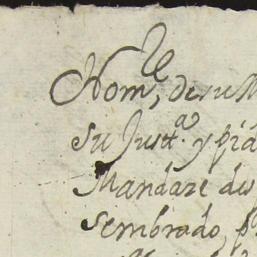 Nom^e, de su M
su Just^a. y pid
Mandare de
sembrado, p